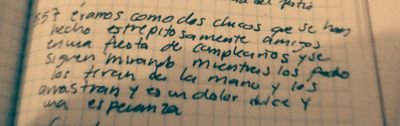 del patio
557 éramos como dos chicos que se han
hecho estrepitosamente amigos
en una fiesta de cumpleaños y se
siguen mirando mientras los padres
los tiran de la mano y los
arrastran y es un dolor dulce y
una esperanza